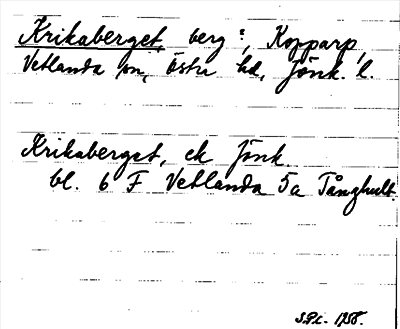 Krikaberget, berg :, Kopparp,
Vetlanda sn, Östra hd, Jönk. l.
Krikaberget, ek Jönk
bl. 6 F Vetlanda 5a Tånghult.
1958.